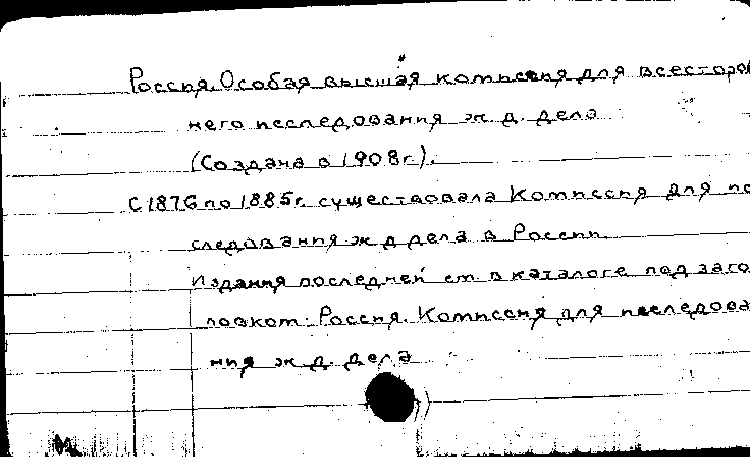 Россия. Особая высшая комиссия для всесторон
него исследования ж. д. дела
(Создана в 1908 г.).
С 1876 по 1885 г. существовала Комиссия для ис
следования ж д дела в России.
Издания последней см. в каталоге под заго
ловком: Россия. Комиссия для исследова
ния ж. д. дела